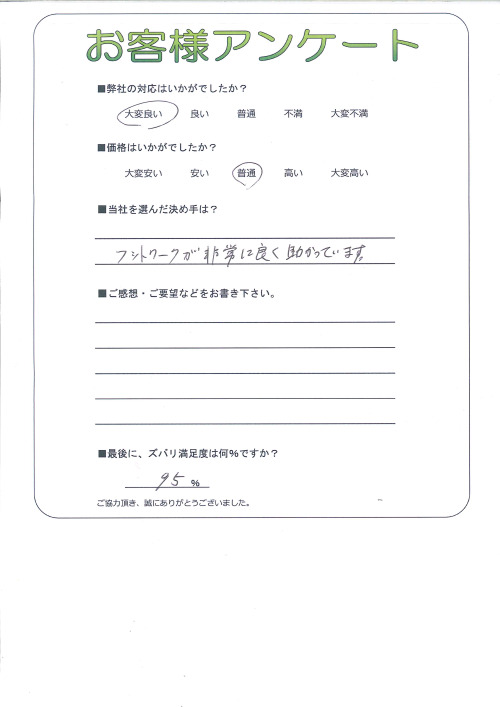 お客様アンケート
■弊社の対応はいかがでしたか？
大変良い 良い 普通 不満 大変不満
■価格はいかがでしたか？
大変安い 安い 普通 高い 大変高い
■当社を選んだ決め手は？
フットワークが非常に良く助かっています。
■ご感想・ご要望などをお書き下さい。
■最後に、ズバリ満足度は何％ですか？
95 ％
ご協力頂き、誠にありがとうございました。